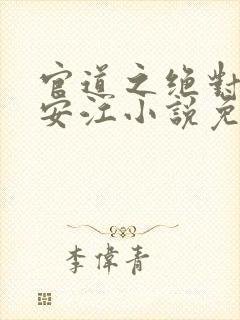 官道之絕對
安江小說免
李偉青